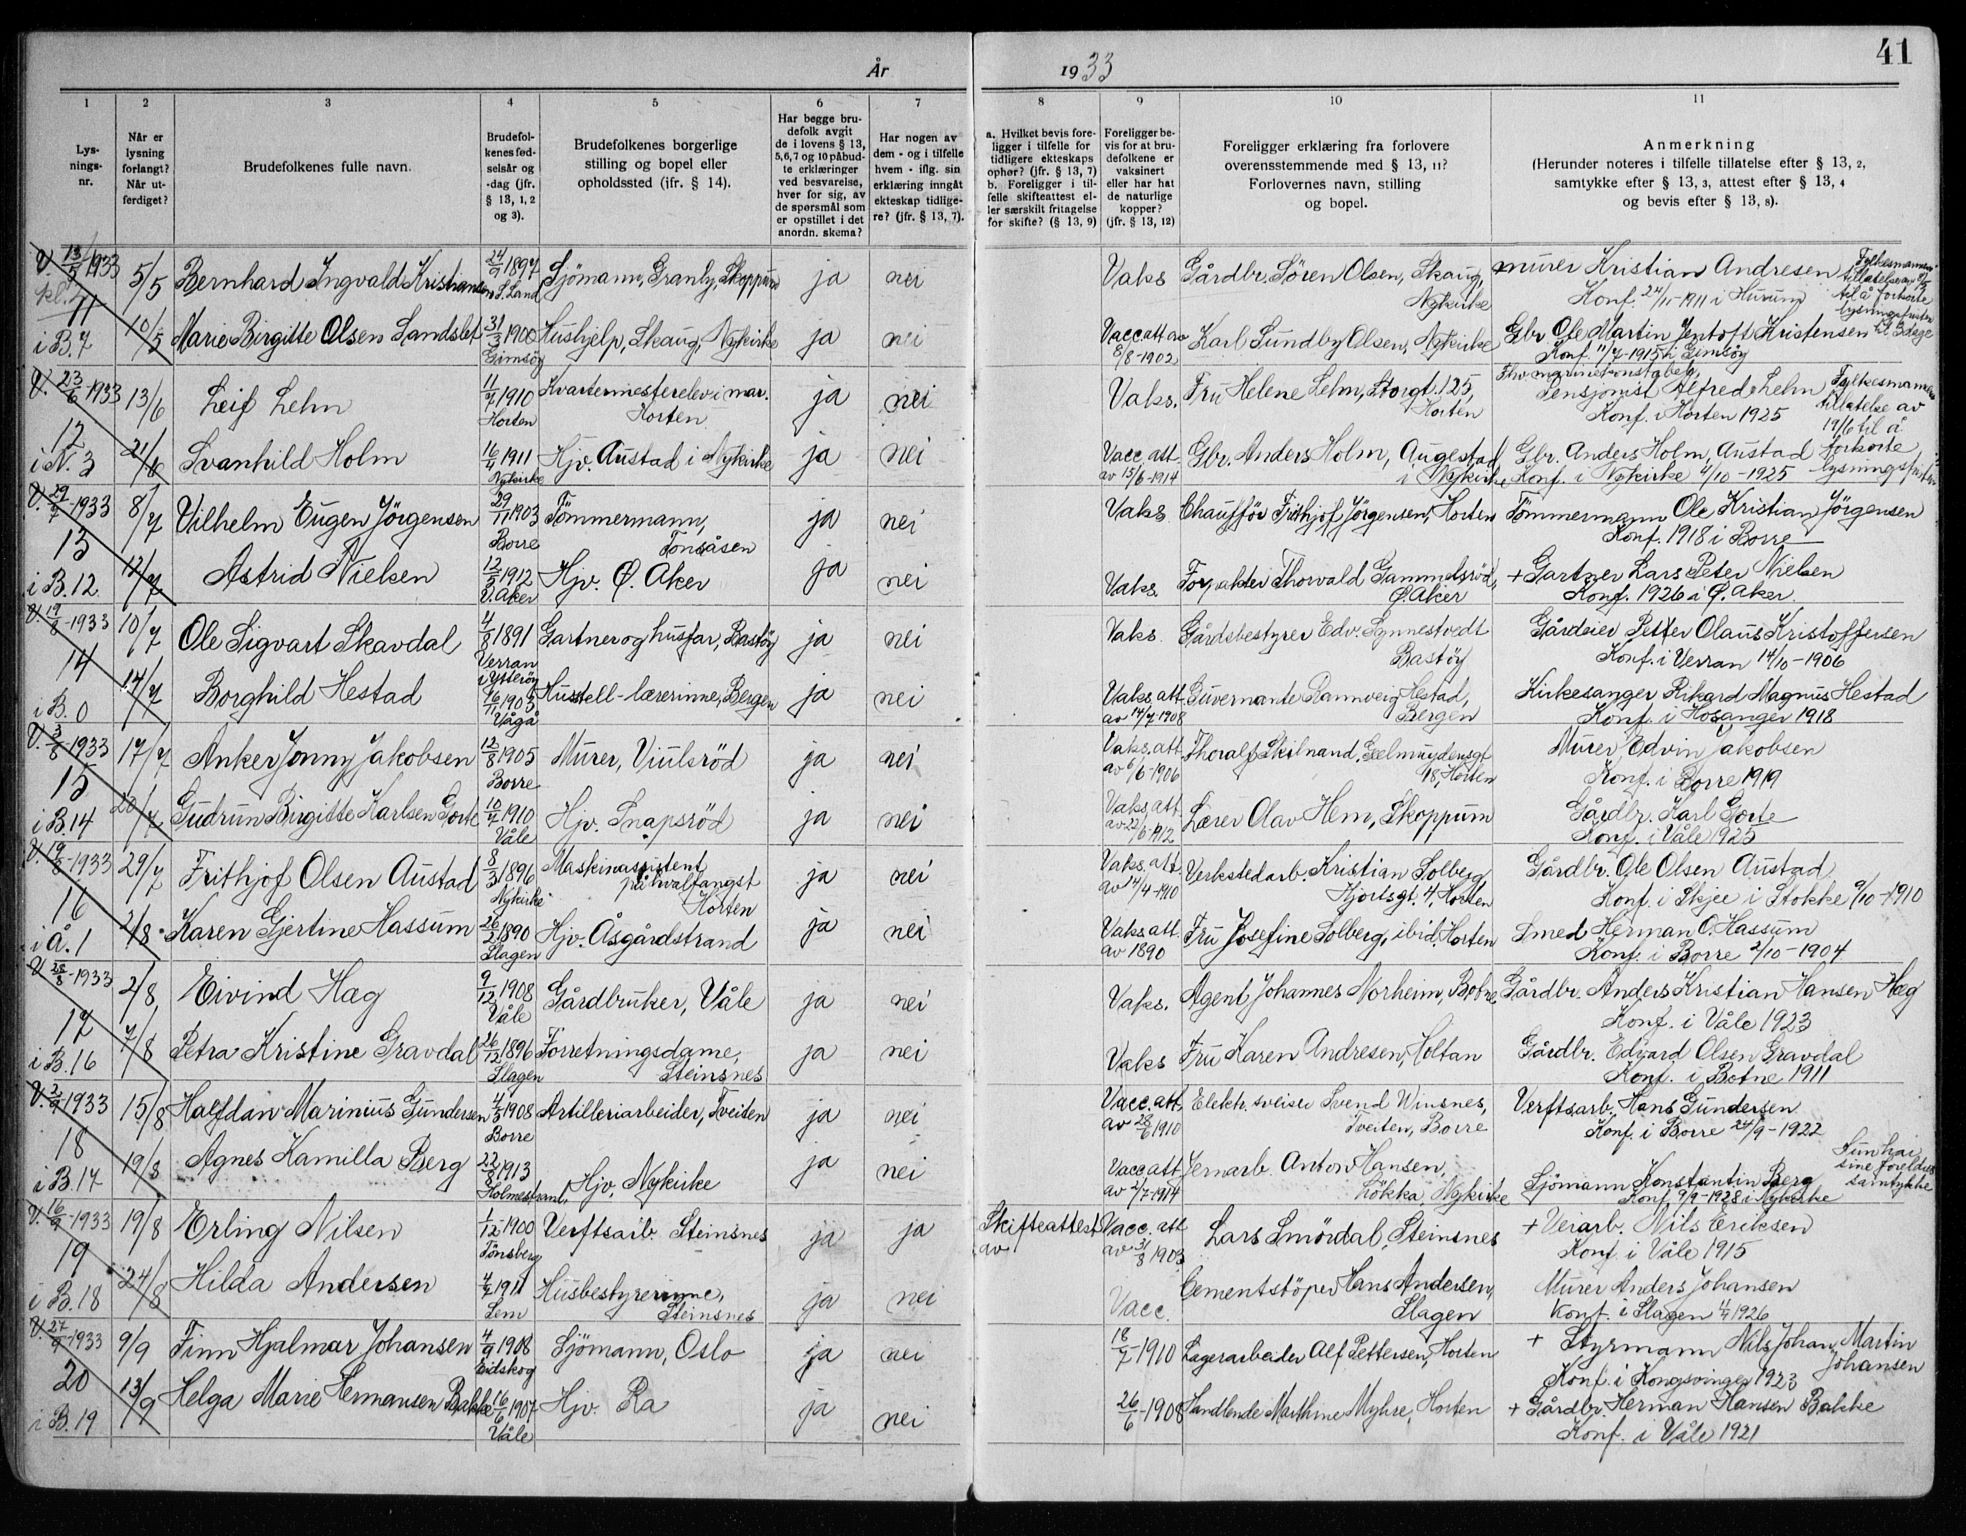 År 1933
41
1 2 3 4 5 6 7 8 9 10 11
Lys-
nings-
nr.
Når er
lysning
forlangt?
Når ut-
ferdiget?
Brudefolkenes fulle navn.
Brudefol-
kenes fød-
selsår og
-dag (jfr.
§ 13, 1, 2
og 3).
Brudefolkenes borgerlige
stilling og bopel eller
opholdssted (jfr. § 14).
Har begge bru-
defolk avgit
de i lovens § 13,
5,6,7 og 10 påbud-
te erklæringer
ved besvarelse,
hver for sig, av
de spørsmål som
er opstillet i det
anordn. skema?
Har nogen av
dem - og i tilfelle
hvem - iflg. sin
erklæring inngåt
ekteskap tidlige-
re? (jfr. § 13, 7).
a. Hvilket bevis fore-
ligger i tilfelle for
tidligere ekteskaps
ophør? (jfr. § 13, 7)
b. Foreligger i til-
felle skifteattest el-
ler særskilt fritagelse
for skifte? (§ 13, 9)
Foreligger be-
vis for at bru-
defolkene er
vaksinert
eller har hat
de naturlige
kopper?
(jfr. § 13, 12)
Foreligger erklæring fra forlovere
overensstemmende med § 13, 11?
Forlovernes navn, stilling
og bopel.
Anmerkning
(Herunder noteres i tilfelle tillatelse efter § 13, 2,
samtykke efter § 13, 3, attest efter § 13, 4
og bevis efter § 13, 8).
V. 13/5 1933 5/5 Bernhard Ingvald Kristiansen 24/9 1897 S. Land Sjömann, Granly, Skoppum ja nei Vaks Gårdbr. Sören Olsen, Skaug, Nykirke murer Kristian Andresen
Konf. 24/11-1911 i Hurum
Fylkesmannens
tillatelse av
til å forkorte
lysningsfristen
til 3 dage
11
i B. 7 10/5 Marie Birgitte Olsen Sandslet 31/3 1900 Gimsöy Hushjelp, Skaug, Nykirke ja nei Vacc att av 8/8-1902 Karl Sundby Olsen, Nykirke Gbr Ole Martin Jentoft Kristensen
Konf. 11/7-1915 i Gimsöy
V. 23/6-1933 13/6 Leif Lehn 11/7 1910 Horten Kvartermesterelev i mar. Horten ja nei Vaks. Fru Helene Lehn, Storgt. 125, Horten Fhv marinekonstabel,
Pensjonist Alfred Lehn
Konf. i Horten 1925
Fylkesmannens
tillatelse av
19/6 til å
forkorte
lysningsfristen
12
i N. 3 21/6 Svanhild Holm 16/4 1911 Nykirke Hjv. Austad i Nykirke ja nei Vacc. att. av 15/6-1914 Gbr. Anders Holm, Augestad i Nykirke Gbr. Anders Holm, Austad
Konf. i Nykirke 4/10-1925
V. 29/7-1933 8/7 Vilhelm Eugen Jörgensen 29/11 1903 Borre Tömmermann, Tonsåsen ja nei Vaks Chaufför Frithjof Jörgensen, Horten Tömmermann Ole Kristian Jörgensen
Konf. 1918 i Borre
13
i B. 12. 12/7 Astrid Nielsen 12/5 1912 Ö. Aker Hjv. Ö. Aker ja nei Vaks. Forpakter Thorvald Gammelsröd, Ö. Aker + Gartner Lars Peter Nielsen
Konf. 1926 i Ö. Aker.
V. 19/8-1933 10/7 Ole Sigvart Skavdal 4/8 1891 Verran i Ytteröy Gartner og husfar, Bastöy ja nei Vaks. Gårdsbestyrer Edv. Synnestvedt Bastöy Gårdeier Petter Olaus Kristoffersen
Konf. i Verran 14/10-1906
14
i B. 0 14/7 Borghild Hestad 16/11 1903 Vågå Husstell-lærerinne, Bergen ja nei Vaks. att. av 14/7-1908 Guvernante Rannveig Hestad, Bergen Kirkesanger Rikard Magnus Hestad
Konf. i Hosanger 1918
V. 3/8-1933 17/7 Anker Jonny Jakobsen 12/8 1905 Borre Murer, Viulsröd ja nei Vaks. att. av 6/6-1906 Thoralf Skilnand, Gelmuydensgt 18, Horten Murer Edvin Jakobsen
Konf. i Borre 1919
15
i B. 14 20/7 Gudrun Birgitte Karlsen Gorte 10/7 1910 Våle Hjv. Snapsröd ja nei Vaks. att. av 22/6-1912 Lærer Olav Hem, Skoppum Gårdbr. Karl Gorte
Konf. i Våle 1925
V. 19/8-1933 29/7 Frithjof Olsen Austad 8/3 1896 Nykirke Maskinassistent på hvalfangst Horten ja nei Vaks. att. av 14/4-1910 Verkstedarb. Kristian Solberg, Hjortsgt. 4, Horten Gårdbr. Ole Olsen Austad
Konf. i Skjee i Stokke 9/10-1910
16
i Å. 1 2/8 Karen Gjertine Hassum 26/2 1890 Slagen Hjv. Åsgårdstrand ja nei Vaks. att. av 1890 Fru Josefine Solberg, ibid. Horten Smed Herman O. Hassum
Konf. i Borre 2/10-1904
V. 28/8-1933 2/8 Eivind Hag 9/12 1908 Våle Gårdbruker, Våle ja nei Vaks. Agent Johannes Norheim, Botne Gårdbr. Anders Kristian Hansen Hag
Konf. i Våle 1923
17
i B. 16 7/8 Petra Kristine Gravdal 26/12 1896 Slagen Forretningsdame, Steinsnes ja nei Vaks Fru Karen Andresen, Holtan Gårdbr. Edvard Olsen Gravdal
Konf. i Botne 1911
V. 2/9 1933 15/8 Halfdan Marinius Gundersen 4/5 1908 Borre Artilleriarbeider, Tveiten ja nei Vacc. att. av 28/6 1910 Elektr. sveiser Svend Winsnes, Tveiten, Borre Verftsarb. Hans Gundersen
Konf. i Borre 24/9-1922
18
i B. 17 19/8 Agnes Kamilla Berg 22/8 1913 Holmestrand Hjv. Nykirke ja nei Vacc att av 2/7-1914 Jernarb. Anton Hansen, Lökka, Nykirke Sjömann Konstantin Berg
Konf. 9/9-1928 i Nykirke
Hun har
sine foreldres
samtykke
V. 16/9-1933 19/8 Erling Nilsen 1/12-1900 Tönsberg Verftsarb. Steinsnes ja ja Skifteattest av Vacc. att av 31/8 1903 Lars Smördal, Steinsnes + Veiarb. Nils Eriksen
Konf. i Våle 1915
19
i B. 18 24/8 Hilda Andersen 4/2 1911 Sem Husbestyrerinne, Steinsnes ja nei Vacc. Cementstöper Hans Andersen, Slagen Murer Anders Johansen
Konf. i Slagen 1926
V. 27/9-1933 9/9 Finn Hjalmar Johansen 4/9 1908 Eidskog Sjömann, Oslo ja nei 18/7-1910 Lagerarbeider Alf Pettersen, Horten + Styrmann Nils Johan Martin Johansen
Konf. i Kongsvinger 1923
20
i B. 19 13/9 Helga Marie Hermansen Bakke 16/6 1907 Våle Hjv. Ra ja nei 26/6-1908 Handlende Marthine Myhre, Horten + Gårdbr. Herman Hansen Bakke
Konf. i Våle 1921